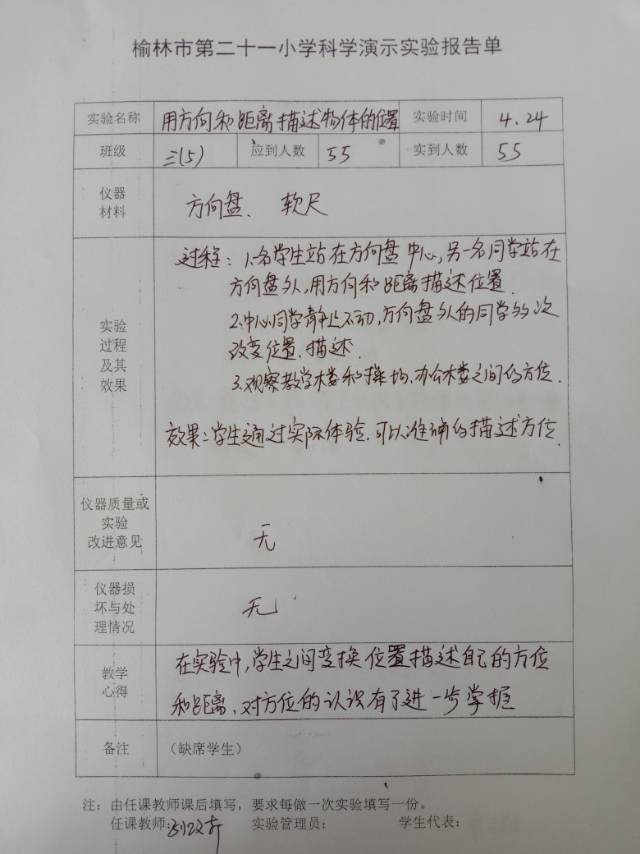 榆林市第二十一小学科学演示实验报告单
实验名称 用方向和距离描述物体的位置 实验时间 4.24
班级 三(5) 应到人数 55 实到人数 55
仪器
材料
方向盘、软尺
实验
过程
及其
效果
过程：1.一名学生站在方向盘中心,另一名同学站在
方向盘外,用方向和距离描述位置.
2.中心同学静止不动,方向盘外的同学多次
改变位置.描述.
3.观察教学楼和操场,办公楼之间的方位.
效果:学生通过实际体验.可以准确的描述方位.
仪器质量或
实验
改进意见
无
仪器损
坏与处
理情况
无
教学
心得
在实验中,学生之间变换位置描述自己的方位
和距离、对方位的认识有了进一步掌握
备注 （缺席学生）
注：由任课教师课后填写，要求每做一次实验填写一份。
任课教师: 实验管理员： 学生代表：